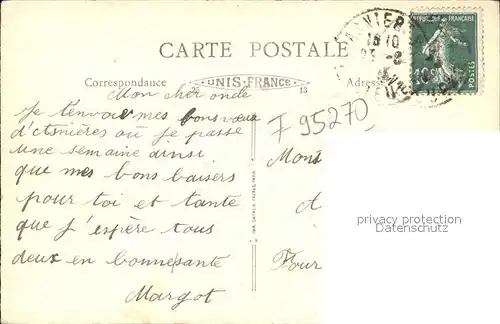 CARTE POSTALE
Correspondance
UNIS-FRANCE
25 13
Adres
RÉPUBLIQUE FRANÇAISE
POSTES
18 10
Mon cher oncle
Je t'envoie mes bons vœux
d'Asnières où je passe
une semaine ainsi
que mes bons baisers
pour toi et tante
que j'espère tous
deux en bonne santé
Margot
F 95270
Mons
A
Four
privacy protection
Datenschutz